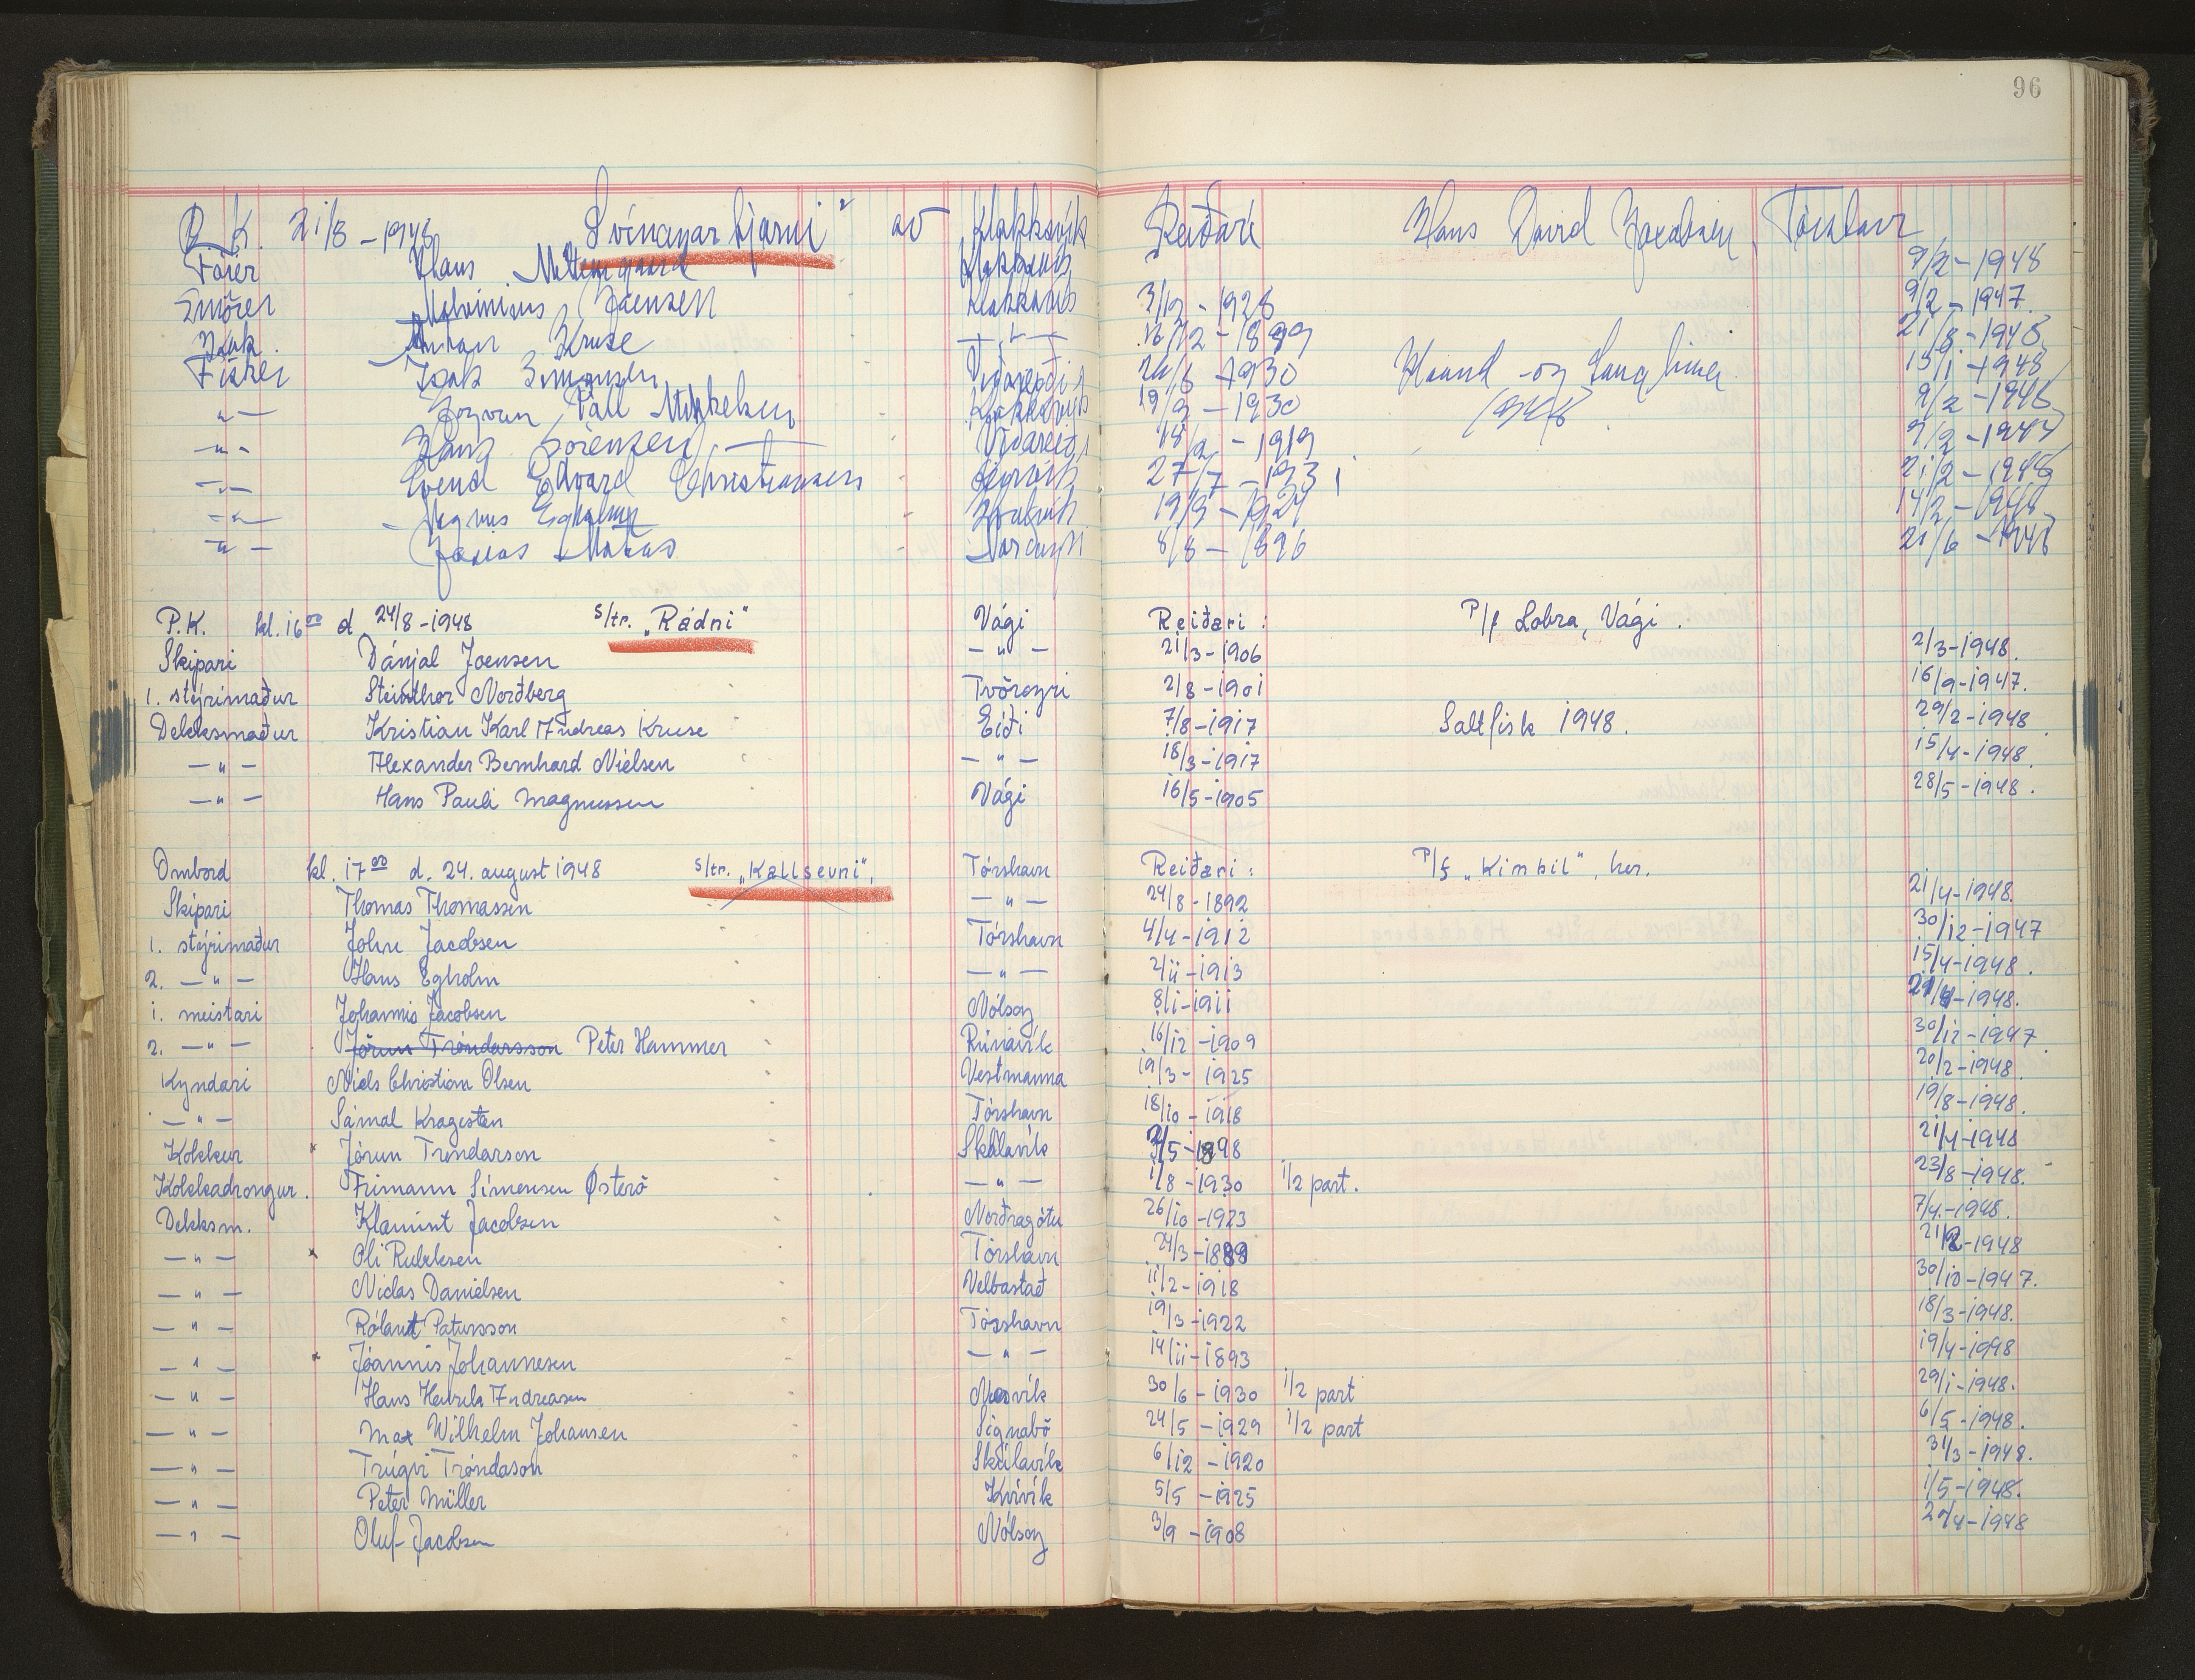 96
P.K. 21/8-1948 Svínoyar bjarni" av Klakksvík Reiðari Hans David Jacobsen, Tórshavn
Fører Hans Klakksvík 9/2-1948
Joensen Klakksvik 3/12-1928 9/2-1947.
Kok Kruse 16/12-1899 21/8-1948
Fisker Isak Simonsen Viðareiði 1930 Haand-og Langliner 15/1-1948
-"- Pall Mikkelsen Klakksvik 19/9-1930 1948 9/2-1948
-"- Hans Sørensen Viðareiði 18/2-1919 9/2-1947
-"- Svend Edvard Christiansen 27/7-1931 21/2-1948
-"- Magnus Egholm 19/3-1924 14/2-1948
-"- 8/8-1896 21/6-1948
P.K. kl. 16 00 d 24/8-1948 s/tr. „Rádni" Vági Reiðari: P/f Lobra, Vági.
Skipari Dánjal Joensen -"- 21/3-1906 2/3-1948.
1. stýrimaður Steinthor Norðberg Tvöroyri 2/8-1901 16/9-1947.
Dekksmaður Kristian Karl Andreas Kruse Eiði 7/8-1917 Saltfisk 1948. 29/2-1948.
-"- Alexander Bernhard Nielsen -"- 18/3-1917 15/4-1948.
-"- Hans Pauli Magnussen Vági 16/5-1905 28/5-1948.
Ombord kl. 17 00 d. 24. august 1948 s/tr. „Kallsevni", Tórshavn Reiðari: P/f „Kimbil", her.
Skipari Thomas Thomassen -"- 24/8-1892 21/4-1948.
1. stýrimaður John Jacobsen Tórshavn 4/4-1912 30/12-1947
2. -"- Hans Egholm -"- 2/11-1913 15/4-1948.
1. meistari Johannis Jacobsen Nólsoy 8/1-1911 -1948.
2. -"- Jórun Tróndarsson Peter Hammer Rúnavík 16/12-1909 30/12-1947
Kyndari Niels Christian Olsen Vestmanna 19/3-1925 20/2-1948.
-"- Sámal Kragesten Tórshavn 18/10-1918 19/8-1948.
Kokkur x Jórun Tróndarson Skálavík /5-1898 21/4-1948
Kokkadrongur. Frimann Símensen Østerö -"- 1/8-1930 1/2 part. 23/8-1948.
Dekksm. Klæmint Jacobsen Norðragötu 26/10-1923 7/4-1948.
-"- x Oli Rubeksen Tórshavn 24/3-1889 -1948
-"- Niclas Danielsen Velbastað 11/2-1918 30/10-1947.
-"- Rólant Patursson Tórshavn 19/3-1922 18/3-1948.
-"- x Jóannis Johannesen -"- 14/11-1893 19/4-1948
-"- Hans Hendrik Andreasen Nesvík 30/6-1930 1/2 part 29/1-1948.
-"- Max Wilhelm Johansen Signabö 24/5-1929 1/2 part 6/5-1948.
-"- Trúgvi Tróndason Skálavík 6/12-1920 31/3-1948.
-"- Peter Müller Kvívík 5/5-1925 1/5-1948.
-"- Oluf Jacobsen Nólsoy 3/9-1908 -1948